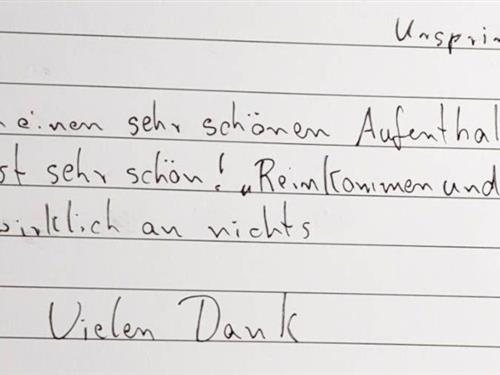 Unsprin
einen sehr schönen Aufenthal
st sehr schön! „Reinkommen und
wirklich an nichts
Vielen Dank